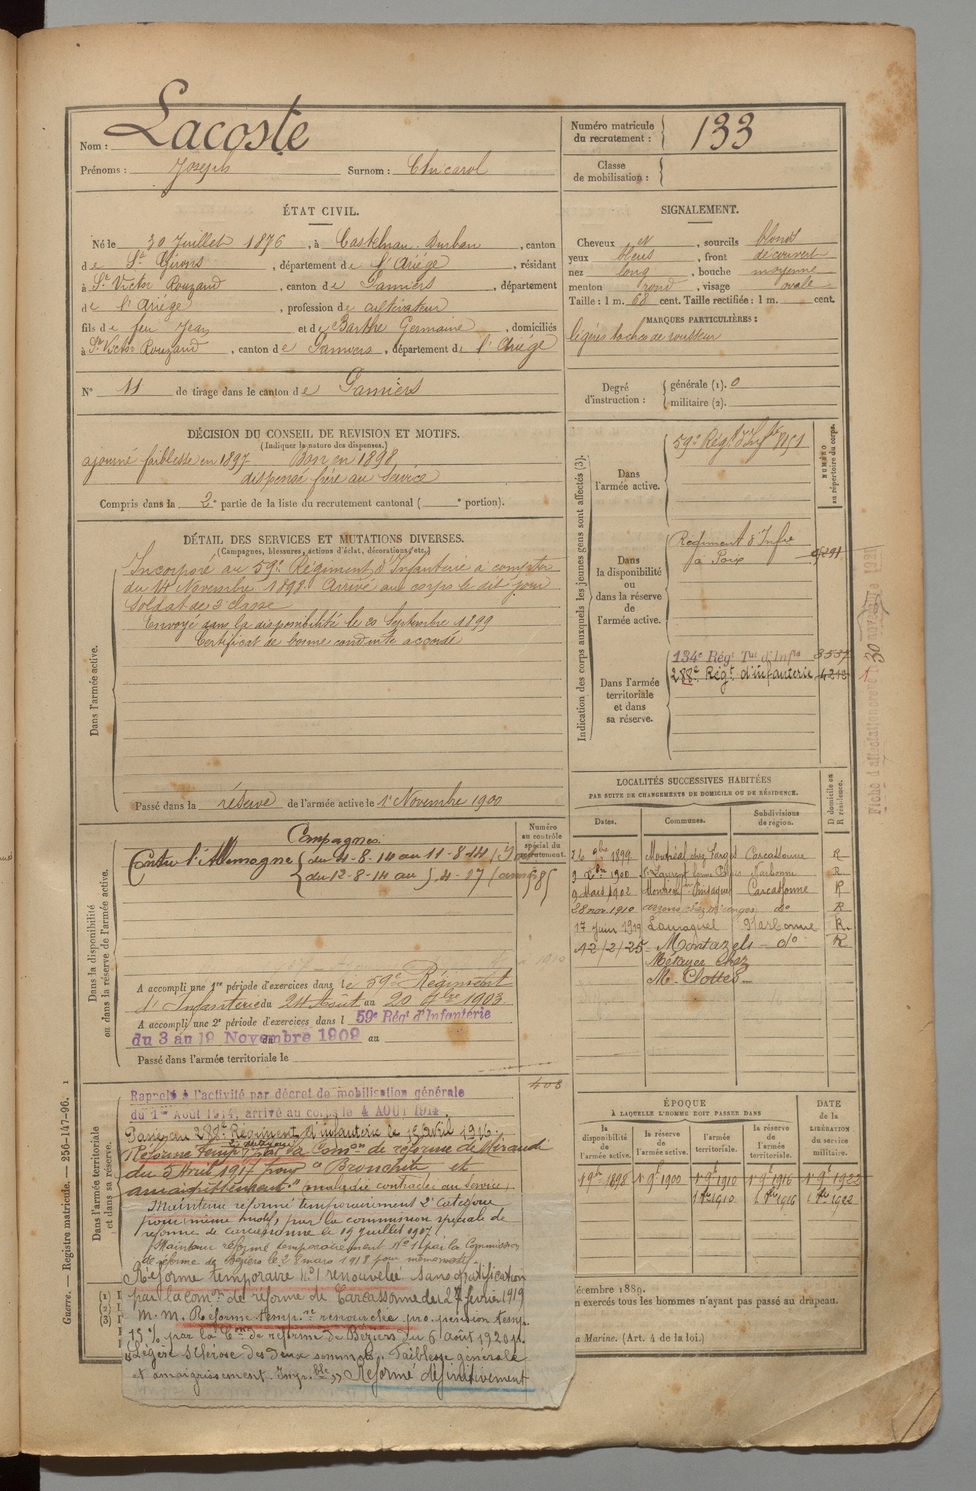 Nom : Lacoste
Prénoms : Joseph Surnom : Chicarol
Numéro matricule du recrutement : 133
Classe de mobilisation :
ÉTAT CIVIL.
Né le 30 Juillet 1876, à Castelnau Durban, canton
de St Girons, département de l'Ariège, résidant
à St Victor Rouzaud, canton de Pamiers, département
de l'Ariège, profession de cultivateur
fils de feu Jean et de Barthe Germaine, domiciliés
à St Victor Rouzaud, canton de Pamiers, département de l'Ariège
N° 11 de tirage dans le canton de Pamiers
SIGNALEMENT.
Cheveux et, sourcils blond
yeux bleus, front découvert
nez long, bouche moyenne
menton rond, visage ovale
Taille : 1 m. 68 cent. Taille rectifiée : 1 m. cent.
MARQUES PARTICULIÈRES :
légères taches de rousseur
Degré d'instruction : générale (1). 0
militaire (2).
DÉCISION DU CONSEIL DE REVISION ET MOTIFS.
(Indiquer la nature des dispenses.)
ajourné faiblesse en 1897 Bon en 1898
dispensé frère au service
Compris dans la 2e partie de la liste du recrutement cantonal ( e portion).
DÉTAIL DES SERVICES ET MUTATIONS DIVERSES.
(Campagnes, blessures, actions d'éclat, décorations, etc.)
Dans l'armée active.
Incorporé au 59e Régiment d'Infanterie à compter
du 14 Novembre 1898. Arrivé au corps le dit jour
Soldat de 2e classe
Envoyé dans la disponibilité le 20 Septembre 1899
Certificat de bonne conduite accordé
Passé dans la réserve de l'armée active le 1er Novembre 1900
Indication des corps auxquels les jeunes gens sont affectés (3).
NUMÉRO au répertoire du corps.
Dans l'armée active.
59e Régt d'Infrie 8151
Dans la disponibilité ou dans la réserve de l'armée active.
Régiment d'Infie
à Foix
Dans l'armée territoriale et dans sa réserve.
134e Régt Tal d'Infie 3557
288e Régt d'infanterie 4212
Fiche d'affectation
30
LOCALITÉS SUCCESSIVES HABITÉES
PAR SUITE DE CHANGEMENTS DE DOMICILE OU DE RÉSIDENCE.
Dates. Communes. Subdivisions de région. D domicile ou R résidence.
26 9bre 1899 Montréal chez Carcassonne R
1900 St Laurent Narbonne R
9 Mars 1902 Montréal Carcassonne R
28 nov 1910 do R
17 Juin 1919 Lauraguel Narbonne R.
12/2/25 Montazels do R
Métayer chez
Mr Clottes
Dans la disponibilité ou dans la réserve de l'armée active.
Numéro au contrôle spécial du recrutement.
Campagnes
Contre l'Allemagne du 4-8-14 au 11-8-14
du 12-8-14 au 5-4-17
585
A accompli une 1re période d'exercices dans le 59e Régiment
d'Infanterie du 24 Août au 20 7bre 1903
A accompli une 2e période d'exercices dans l 59e Régt d'Infanterie
du 3 au 19 Novembre 1909 au
Passé dans l'armée territoriale le
Dans l'armée territoriale et dans sa réserve.
Rappelé à l'activité par décret de mobilisation générale
du 1er Août 1914, arrivé au corps le 4 AOUT 1914.
Passé au 288e Régiment d'infanterie le 15 avril 1916.
Réformé tempre par la Comon de réforme de Mirande
du 5 Avril 1917 pour « Bronchite et
amaigrissement » maladie contractée au service.
Maintenu réformé temporairement 2e catégorie
pour même motif, par la commission spéciale de
réforme de Carcassonne le 19 juillet 1917
Maintenu réformé temporairement N° 1 par la Commission
de réforme de Béziers le 28 mars 1918 pour même motif.
Réforme temporaire N° 1 renouvelée sans gratification
par la Comon de réforme de Carcassonne du 27 février 1919
M. M. Réforme tempre renouvelée pro. pension temp.
15% par la Con de réforme de Béziers du 6 août 1920 pr
Légère sclérose des deux sommets. Faiblesse générale
et amaigrissement. Réformé définitivement
ÉPOQUE
À LAQUELLE L'HOMME DOIT PASSER DANS
DATE de la LIBÉRATION du service militaire.
la disponibilité de l'armée active. la réserve de l'armée active. l'armée territoriale. la réserve de l'armée territoriale.
1 9bre 1898 1er 9bre 1900 1er 9bre 1910 1er 9bre 1916 1er 9bre 1922
1er 1910 1er 1916 1er 1922
décembre 1889.
n exercés tous les hommes n'ayant pas passé au drapeau.
la Marine. (Art. 4 de la loi.)
Guerre. — Registre matricule. — 256-147-96.